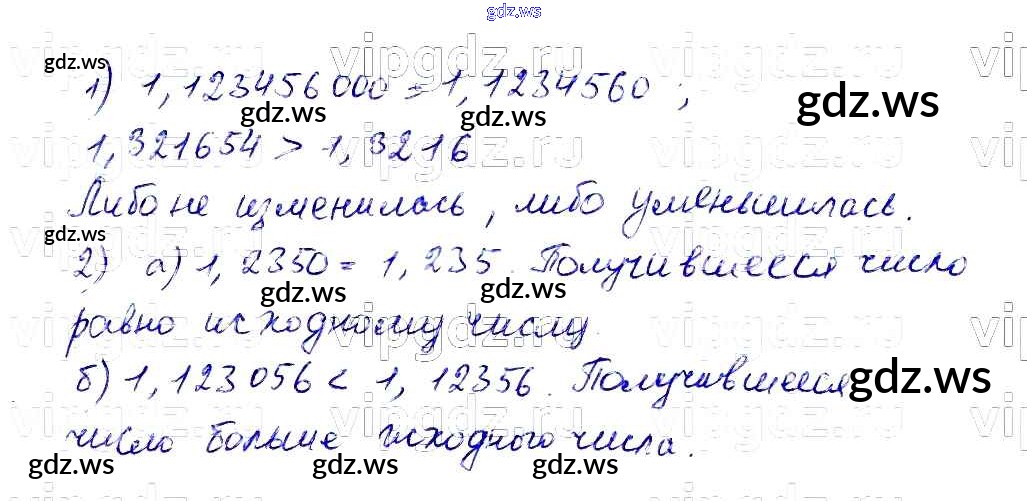 gdz.ws
gdz.ws
1) 1,123456000 = 1,1234560 ;
gdz.ws
gdz.ws gdz.ws
1,321654 > 1,3216
Либо не изменилась, либо уменьшилась.
gdz.ws
2) а) 1,2350 = 1,235. Получившееся число
gdz.ws gdz.ws
равно исходному числу.
б) 1,123056 < 1,12356. Получившееся
gdz.ws
число больше исходного числа.
gdz.ws gdz.ws gdz.ws
vipgdz.ru